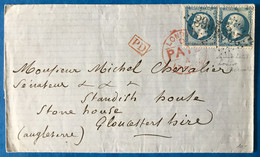 PD
LON
PA
Monsieur Michel Chevalier
Sénateur &
Standish house
Stone house
Gloucestershire
(angleterre)